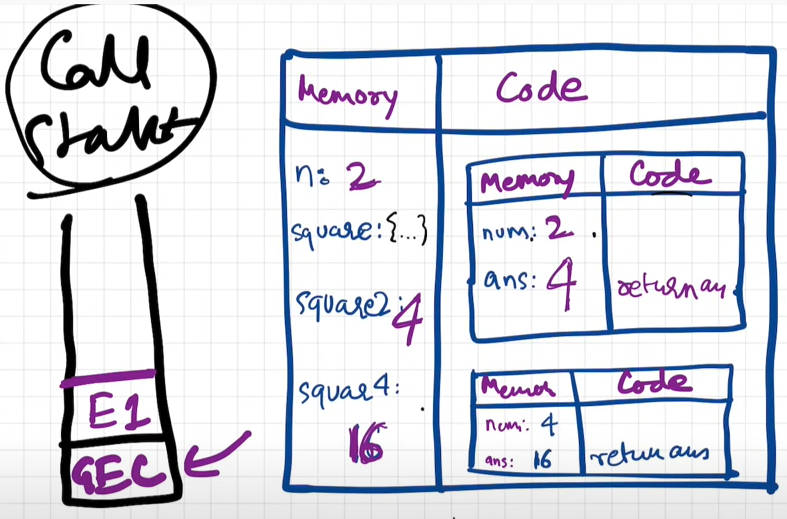 Call
Stakt
E1
GEC
Memory
Code
n: 2
square: {...}
square2: 4
squar4:
16
Memory
Code
num: 2
ans: 4
return an
Memor
Code
num: 4
ans: 16
return ans